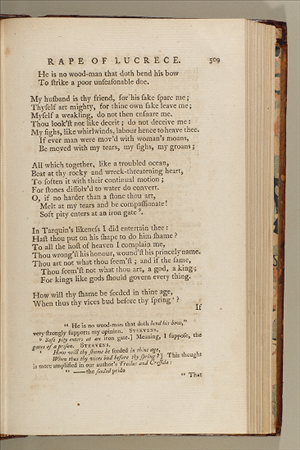 RAPE OF LUCRECE. 509
He is no wood-man that doth bend his bow
To strike a poor unseasonable doe.
My husband is thy friend, for his sake spare me;
Thyself art mighty, for thine own sake leave me;
Myself a weakling, do not then ensnare me.
Thou look'st not like deceit; do not deceive me:
My sighs, like whirlwinds, labour hence to heave thee.
If ever man were mov'd with woman's moans,
Be moved with my tears, my sighs, my groans;
All which together, like a troubled ocean,
Beat at thy rocky and wreck-threatening heart,
To soften it with their continual motion;
For stones dissolv'd to water do convert.
O, if no harder than a stone thou art,
Melt at my tears and be compassionate!
Soft pity enters at an iron gate.
In Tarquin's likeness I did entertain thee:
Hast thou put on his shape to do him shame?
To all the host of heaven I complain me,
Thou wrong'st his honour, wound'st his princely name.
Thou art not what thou seem'st; and if the same,
Thou seem'st not what thou art, a god, a king;
For kings like gods should govern every thing.
How will thy shame be seeded in thine age,
When thus thy vices bud before thy spring?
If
"He is no wood-man that doth bend his bow,"
very strongly supports my opinion. STEEVENS.
Soft pity enters at an iron gate.] Meaning, I suppose, the
gates of a prison. STEEVENS.
How will thy shame be seeded in thine age,
When thus thy vices bud before thy spring?] This thought
is more amplified in our author's Troilus and Cressida:
"——the seeded pride
"That